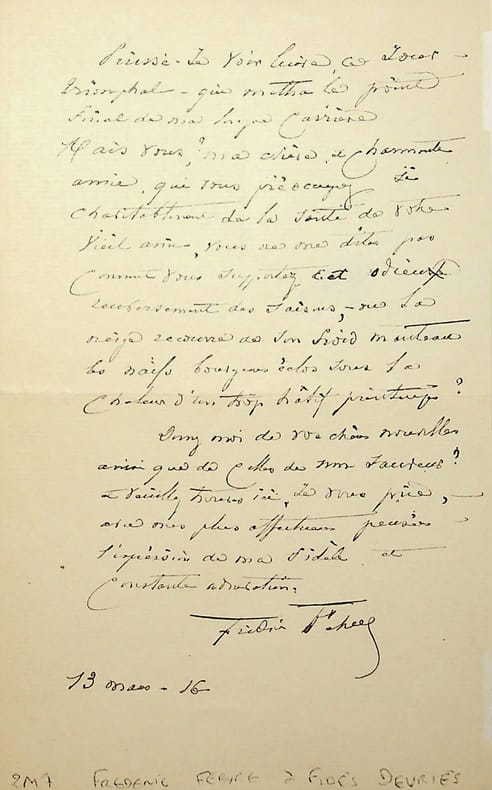 Puissé-Je voir luire ce Jour
triomphal - qui mettra le point
final de ma longue Carrière
Mais vous, ma chère & Charmante
amie, qui vous préoccupez si
Charitablement de la Santé de votre
vieil ami, vous ne me dites pas
Comment vous supportez cet odieux
renversement des Saisons, - ou la
neige recouvre de son froid manteau
les naïfs bourgeons éclos sous la
Chaleur d'un trop hâtif printemps?
Donnez moi de vos chères nouvelles
ainsi que de Celles de
& Veuillez trouver ici, Je vous prie, -
avec mes plus affectueuses pensées
l'expression de ma fidèle et
Constante admiration.
Frédéric Febvre
13 mars - 16
2M7 FREDERIC FEBVRE à FIDES DEVRIES